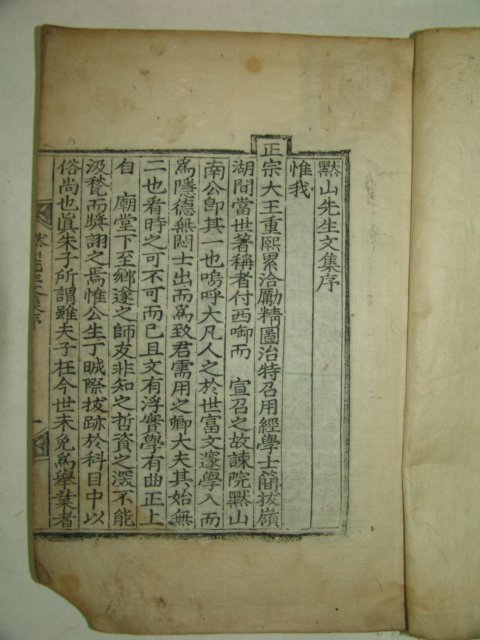 黙山先生文集序
惟我
正宗大王重熙累洽勵精圖治特召用經學士簡拔嶺
湖間當世著稱者付西啣而 宣召之故諫院黙山
南公卽其一也嗚呼大凡人之於世富文邃學入而
爲隱德無悶士出而爲致君需用之卿大夫其始無
二也看時之可不可而已且文有浮實學有曲正上
自 廟堂下至鄕邃之師友非知之哲資之深不能
汲甃而奬詡之焉惟公生丁晠際拔跡於科目中以
俗尙也眞朱子所謂雖夫子在今世未免爲擧業者